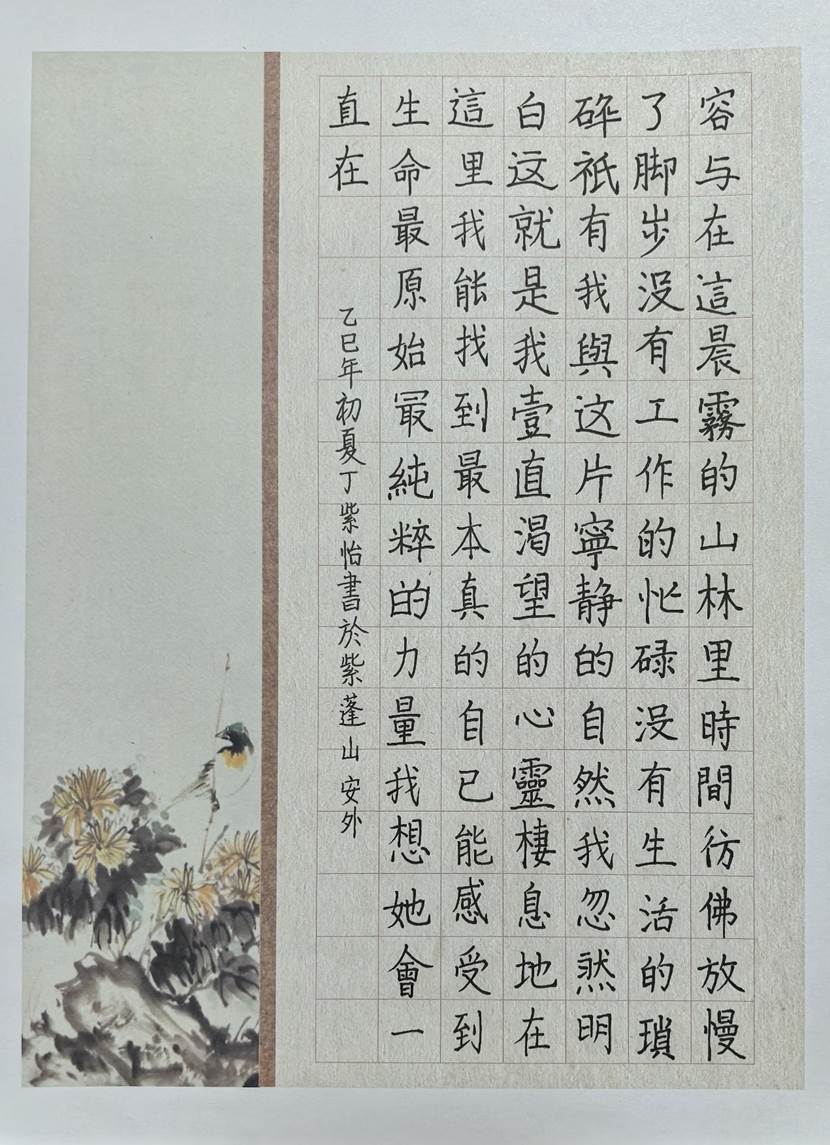 容与在這晨霧的山林里時間彷佛放慢
了脚步没有工作的忙碌没有生活的瑣
碎祇有我與这片寧静的自然我忽然明
白这就是我壹直渴望的心靈棲息地在
這里我能找到最本真的自已能感受到
生命最原始最純粹的力量我想她會一
直在
乙巳年初夏丁紫怡書於紫蓬山安外